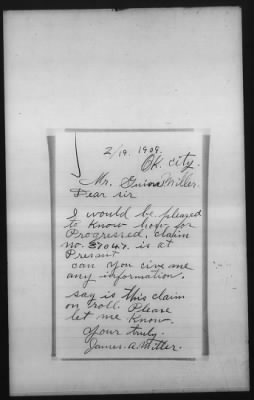 2/19. 1909.
Ok. City.
Mr. Guion Miller.
Dear sir
I would be pleased
to Know how far
Progressed, claim
no. 37047. is at
Presant
can you give me
any information.
say is this claim
on roll. Please
let me Know.
Your truly.
James. A. Miller.